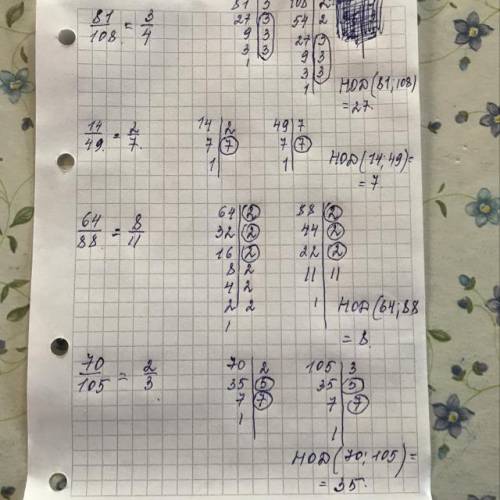 81/108 = 3/4
81 | 3
27 | 3
9 | 3
3 | 3
1
108 | 2
54 | 2
27 | 3
9 | 3
3 | 3
1
НОД (81; 108)
= 27.
14/49. = 2/7.
14 | 2
7 | 7
1
49 | 7
7 | 7
1
НОД (14; 49) =
= 7.
64/88 = 8/11
64 | 2
32 | 2
16 | 2
8 | 2
4 | 2
2 | 2
1
88 | 2
44 | 2
22 | 2
11 | 11
1
НОД (64; 88
= 8.
70/105 = 2/3
70 | 2
35 | 5
7 | 7
1
105 | 3
35 | 5
7 | 7
1
НОД (70; 105) =
= 35.